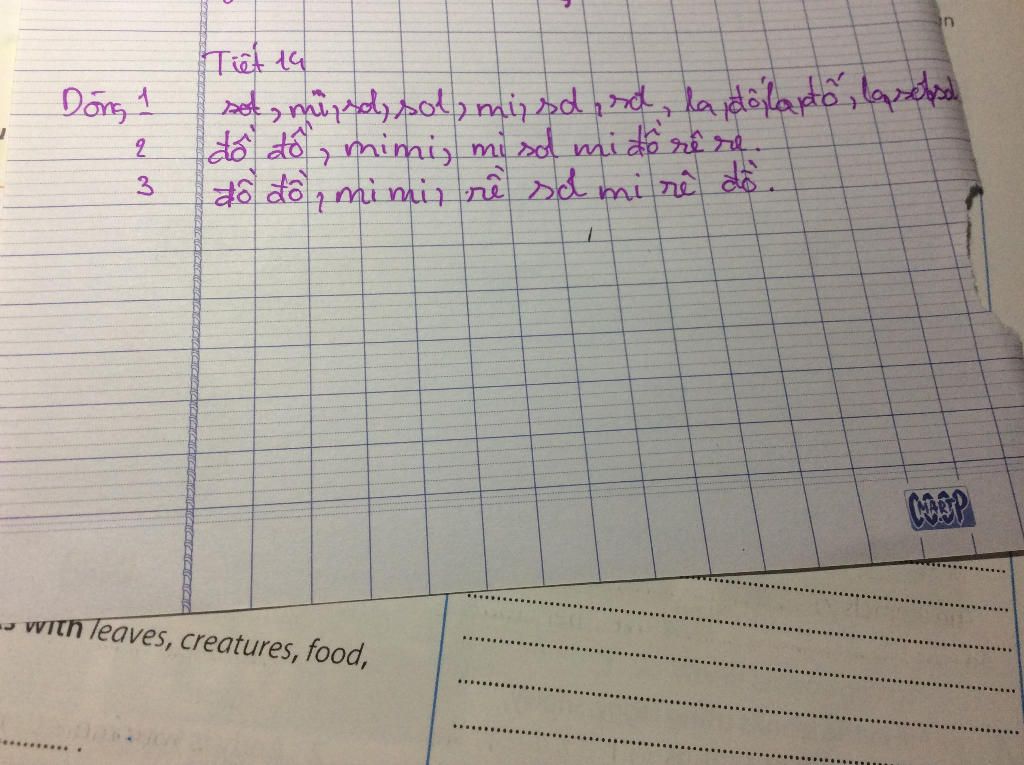 n
Tiết 14
Dòng 1 sol, mi, sol, sol, mi, sol, sol, la, đố, la, đố, la, sol, sol
2 đồ đồ, mi mi, mi sol mi đồ rê re.
3 đồ đồ, mi mi, rề sol mi rê đồ.
COOPMART
with leaves, creatures, food,